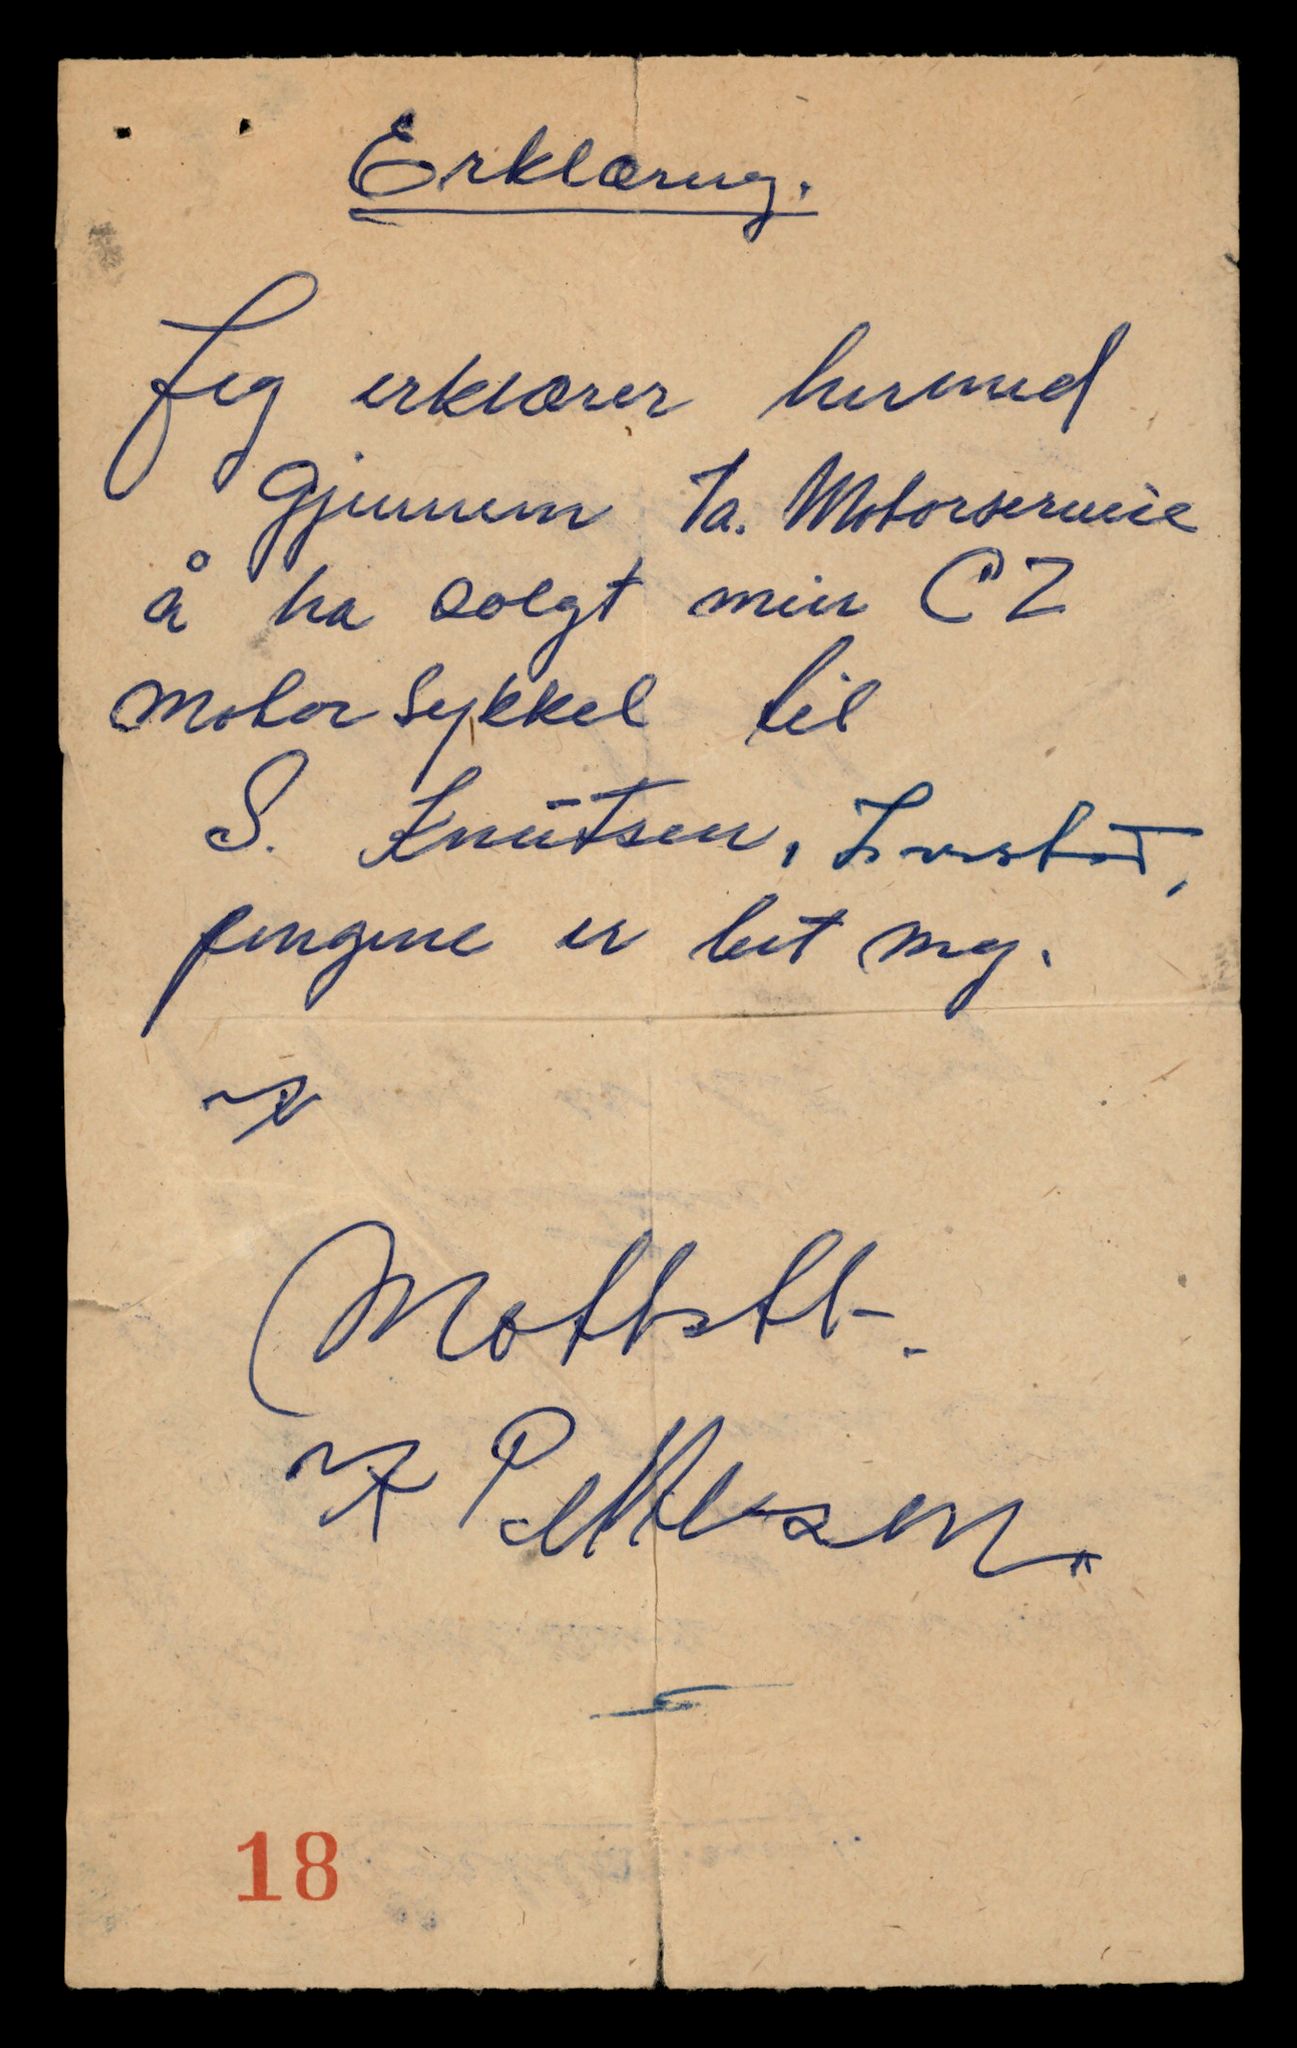 Erklæring.
Jeg erklærer hermed
gjennem Fa. Motorservice
å ha solgt min CZ
motorsykkel til
S. Knutsen,
pengene er bet meg.
Mottatt.
Pettersen.
18